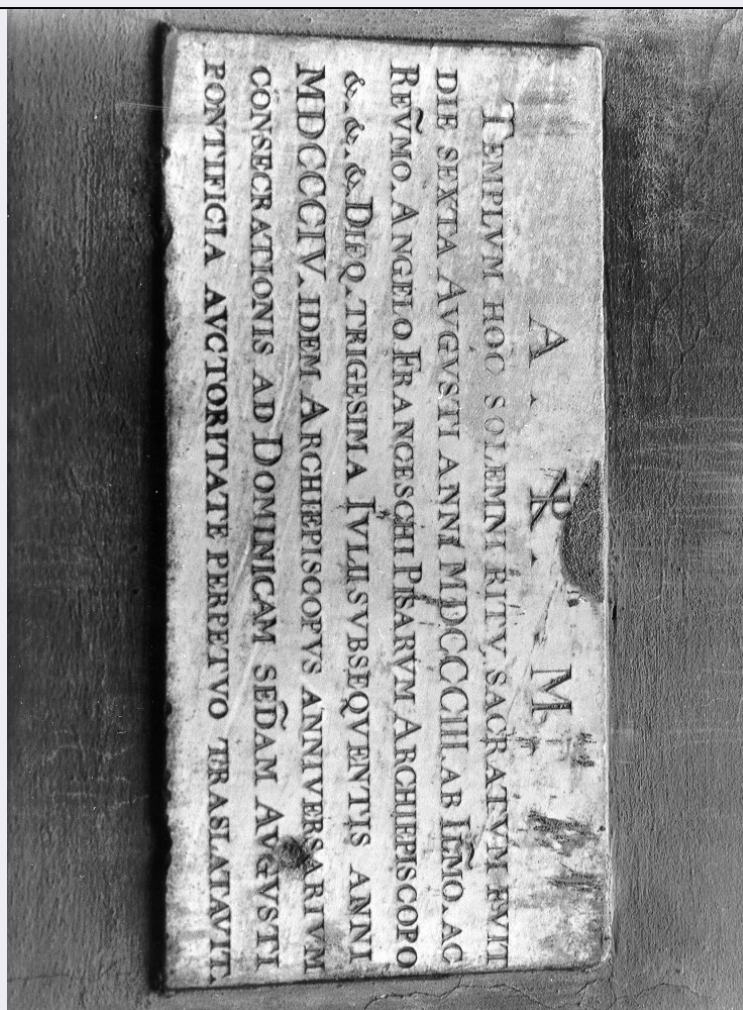 A. ☧. M.
TEMPLVM HOC SOLEMNI RITV SACRATVM FVIT
DIE SEXTA AVGVSTI ANNI MDCCCIII. AB ILL̃MO. AC
REṼMO. ANGELO FRANCESCHI PISARVM ARCHIEPISCOPO
&. &. & DIEQ. TRIGESIMA IVLII SVBSEQVENTIS ANNI
MDCCCIV. IDEM ARCHIEPISCOPVS ANNIVERSARIVM
CONSECRATIONIS AD DOMINICAM SED̃AM AVGVSTI
PONTIFICIA AVCTORITATE PERPETVO TRASLATAVIT.